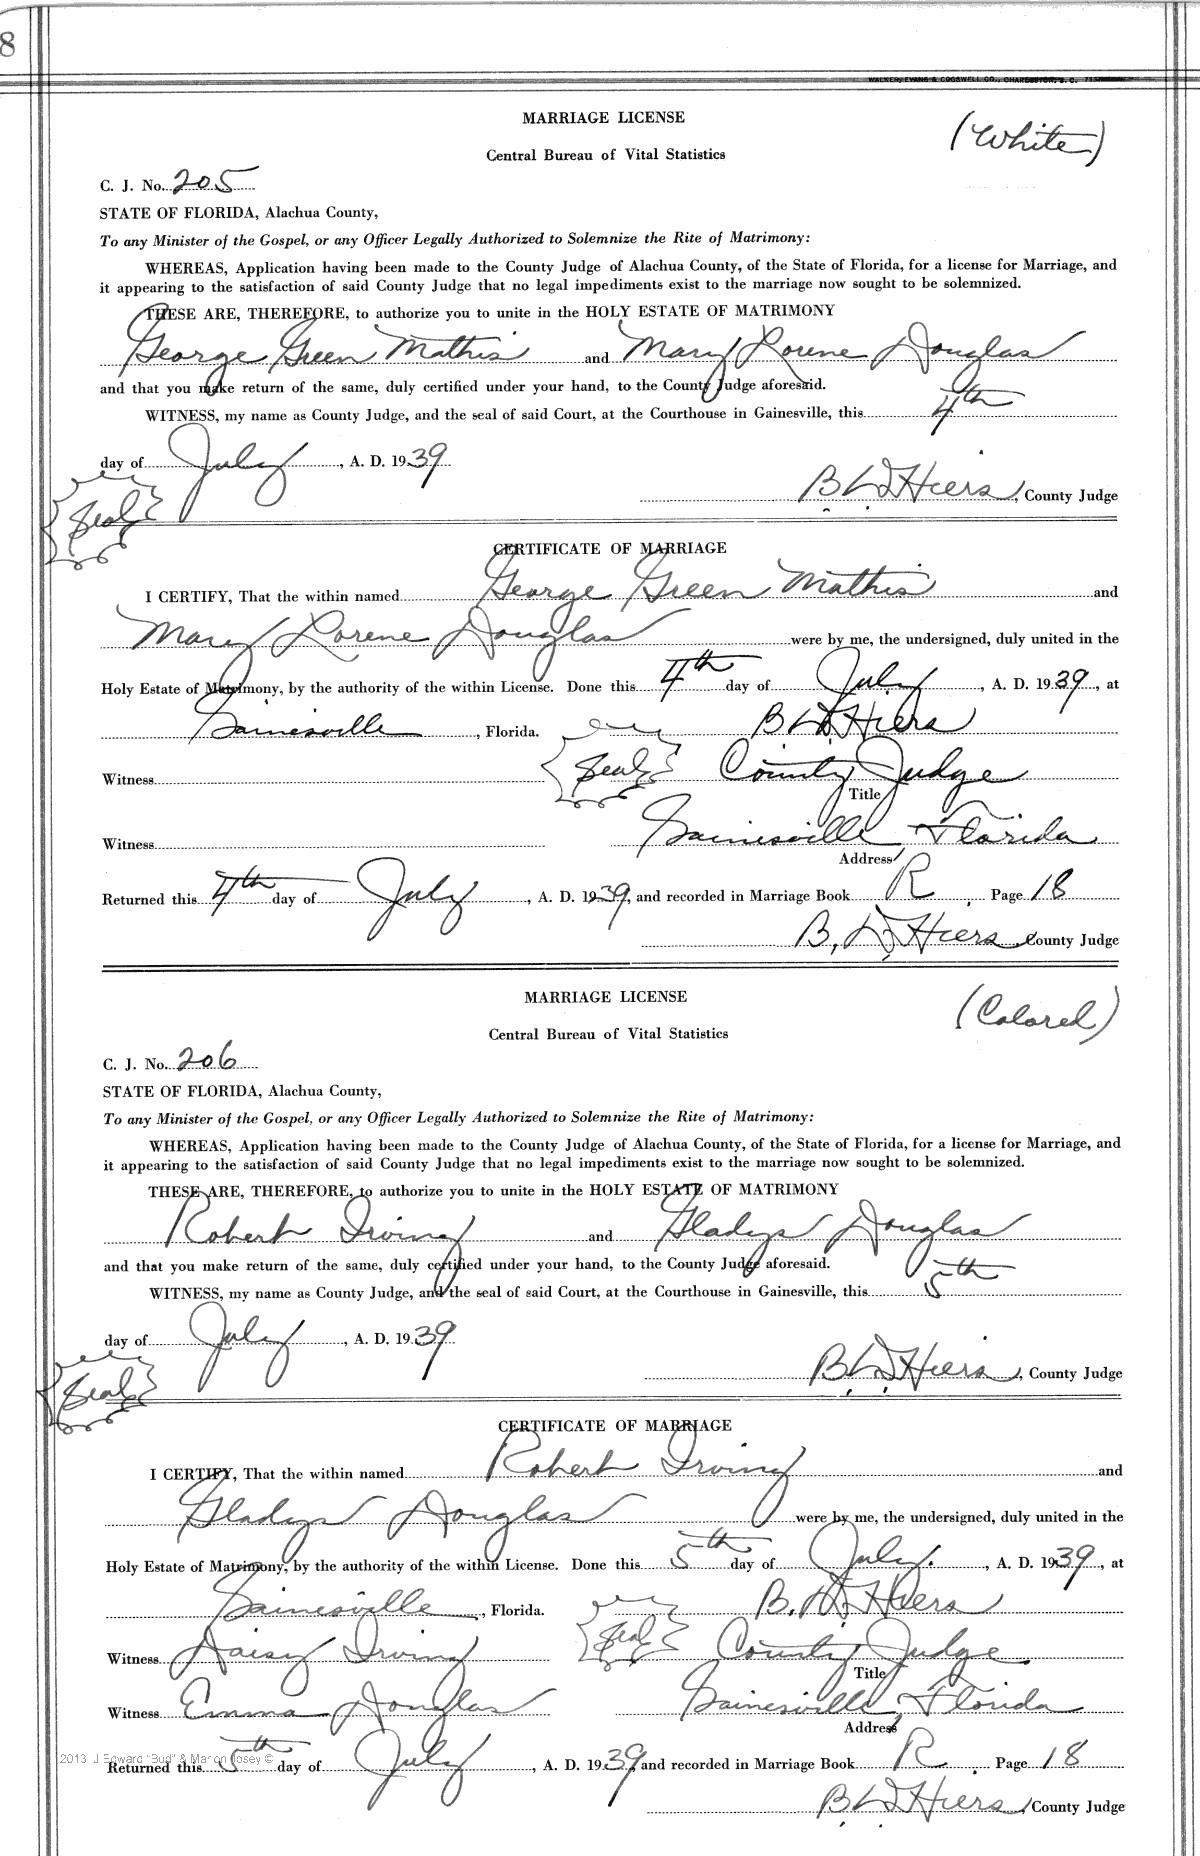 8
WALKER, EVANS & COGSWELL CO., CHARLESTON, S. C.
MARRIAGE LICENSE
(White)
Central Bureau of Vital Statistics
C. J. No. 205
STATE OF FLORIDA, Alachua County,
To any Minister of the Gospel, or any Officer Legally Authorized to Solemnize the Rite of Matrimony:
WHEREAS, Application having been made to the County Judge of Alachua County, of the State of Florida, for a license for Marriage, and
it appearing to the satisfaction of said County Judge that no legal impediments exist to the marriage now sought to be solemnized.
THESE ARE, THEREFORE, to authorize you to unite in the HOLY ESTATE OF MATRIMONY
George Green Mathis and Mary Lorene Douglas
and that you make return of the same, duly certified under your hand, to the County Judge aforesaid.
WITNESS, my name as County Judge, and the seal of said Court, at the Courthouse in Gainesville, this 4th
day of July, A. D. 1939
B. L. D. Hiers, County Judge
Seal
CERTIFICATE OF MARRIAGE
I CERTIFY, That the within named George Green Mathis and
Mary Lorene Douglas were by me, the undersigned, duly united in the
Holy Estate of Matrimony, by the authority of the within License. Done this 4th day of July, A. D. 1939, at
Gainesville, Florida. B L D Hiers
Witness Seal County Judge
Title
Witness Gainesville Florida
Address
Returned this 4th day of July, A. D. 1939, and recorded in Marriage Book R, Page 18
B. L. D. Hiers County Judge
MARRIAGE LICENSE
(Colored)
Central Bureau of Vital Statistics
C. J. No. 206
STATE OF FLORIDA, Alachua County,
To any Minister of the Gospel, or any Officer Legally Authorized to Solemnize the Rite of Matrimony:
WHEREAS, Application having been made to the County Judge of Alachua County, of the State of Florida, for a license for Marriage, and
it appearing to the satisfaction of said County Judge that no legal impediments exist to the marriage now sought to be solemnized.
THESE ARE, THEREFORE, to authorize you to unite in the HOLY ESTATE OF MATRIMONY
Robert Irving and Gladys Douglas
and that you make return of the same, duly certified under your hand, to the County Judge aforesaid.
WITNESS, my name as County Judge, and the seal of said Court, at the Courthouse in Gainesville, this 5th
day of July, A. D. 1939
B. L. D. Hiers, County Judge
Seal
CERTIFICATE OF MARRIAGE
I CERTIFY, That the within named Robert Irving and
Gladys Douglas were by me, the undersigned, duly united in the
Holy Estate of Matrimony, by the authority of the within License. Done this 5th day of July, A. D. 1939, at
Gainesville, Florida. B. L. D. Hiers
Witness Daisy Irving Seal County Judge
Title
Witness Emma Douglas Gainesville, Florida
Address
2013 J Edward "Bud" & Marion Josey ©
Returned this 5th day of July, A. D. 1939, and recorded in Marriage Book R, Page 18
B. L. D. Hiers, County Judge